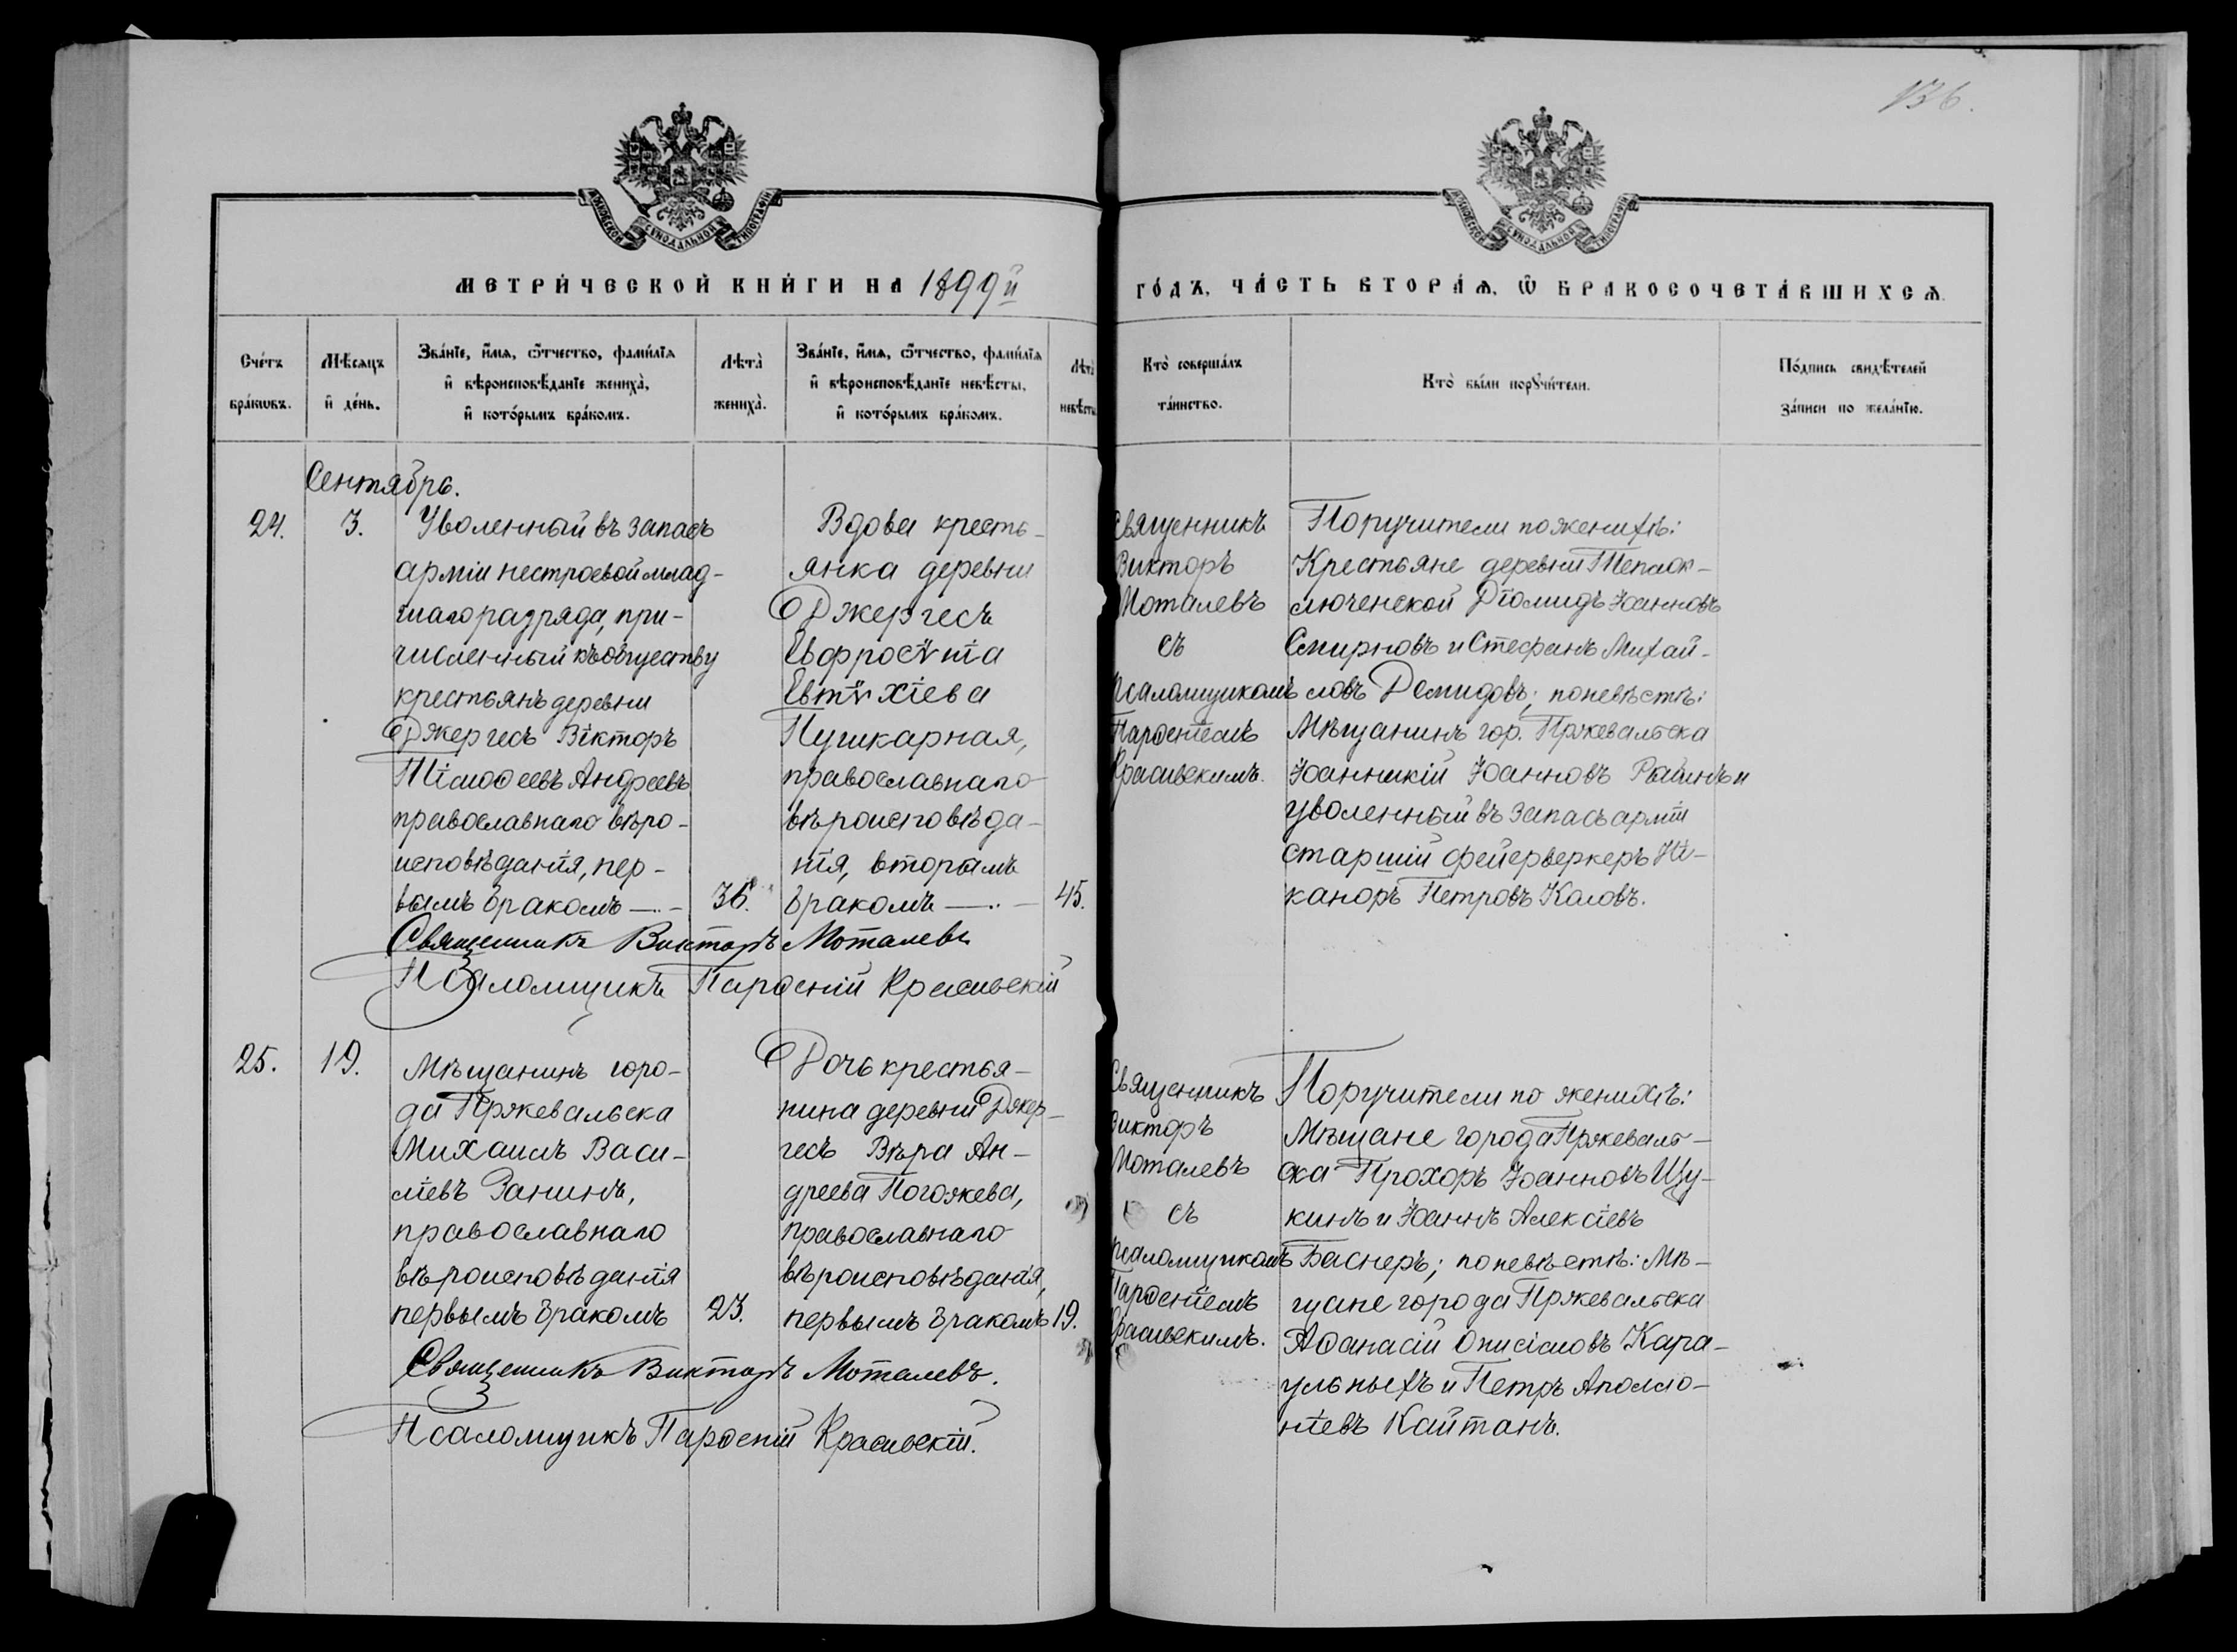 136.
МОСКОВСКОЙ СѴНОДАЛЬНОЙ ТИПОГРАФІИ
МОСКОВСКОЙ СѴНОДАЛЬНОЙ ТИПОГРАФІИ
МЕТРИ́ЧЕСКОЙ КНИ́ГИ НА 1899й
ГО́ДЪ, ЧА́СТЬ ВТОРА́Ѧ, Ѽ БРАКОСОЧЕТА́ВШИХСѦ.
Сче́тъ бра́кѡвъ.
Мѣ́сѧцъ и҆ де́нь.
Зва́нїе, и҆́мѧ, ѻ҆́тчество, фами́лїѧ и҆ вѣроисповѣ́данїе жениха̀, и҆ кото́рымъ бра́комъ.
Лѣта̀ жениха̀.
Зва́нїе, и҆́мѧ, ѻ҆́тчество, фами́лїѧ и҆ вѣроисповѣ́данїе невѣ́сты, и҆ кото́рымъ бра́комъ.
Лѣта̀ невѣ́сты
Кто̀ соверша́лъ та́инство.
Кто̀ бы́ли порꙋчи́тели.
По́дпись свидѣ́телей за́писи по жела́нїю.
Сентябрь.
24.
3.
Уволенный въ запасъ
арміи нестроевой млад-
шаго разряда, при-
численный къ обществу
крестьянъ деревни
Джергесъ Вікторъ
Тімоѳеевъ Андреевъ
православнаго вѣро-
исповѣданія, пер-
вымъ бракомъ —..—
36.
Вдова кресть-
янка деревни
Джергесъ
Евфросѵнія
Евтѵхіева
Пушкарная,
православнаго
вѣроисповѣда-
нія, вторымъ
бракомъ —..—
45.
Священникъ
Викторъ
Моталевъ
съ
псаломщикомъ
Парѳеніемъ
Красивскимъ.
Поручители по женихѣ:
Крестьяне деревни Теплок-
люченской Діомидъ Іоанновъ
Смирновъ и Стефанъ Михай-
ловъ Демидовъ; по невѣстѣ:
Мѣщанинъ гор. Пржевальска
Іоанникій Іоанновъ и
уволенный въ запасъ арміи
старшій фейерверкеръ Ни-
каноръ Петровъ Каловъ.
Священникъ Викторъ Моталевъ
Псаломщикъ Парѳеній Красивскій
25.
19.
Мѣщанинъ горо-
да Пржевальска
Михаилъ Васи-
ліевъ Занинъ,
православнаго
вѣроисповѣданія
первымъ бракомъ
23.
Дочь крестья-
нина деревни Джер-
гесъ Вѣра Ан-
дреева Погожева,
православнаго
вѣроисповѣданія,
первымъ бракомъ
19.
Священникъ
Викторъ
Моталевъ
съ
псаломщикомъ
Парѳеніемъ
Красивскимъ.
Поручители по женихѣ:
Мѣщане города Пржеваль-
ска Прохоръ Іоанновъ Щу-
кинъ и Іоаннъ Алексіевъ
Баснеръ; по невѣстѣ: Мѣ-
щане города Пржевальска
Аѳанасій Онисімовъ Кара-
ульныхъ и Петръ Аполло-
ніевъ Кайтанъ.
Священникъ Викторъ Моталевъ.
Псаломщикъ Парѳеній Красивскій.